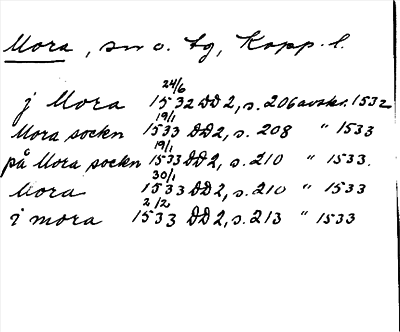 Mora, sn o. tg, Kopp. l.
j Mora 24/6 1532 DD 2, s. 206 avskr. 1532
Mora sockn 19/1 1533 DD 2, s. 208 " 1533
på Mora sockn 19/1 1533 DD 2, s. 210 " 1533.
Mora 30/1 1533 DD 2, s. 210 " 1533
i mora 2/2 1533 DD 2, s. 213 " 1533